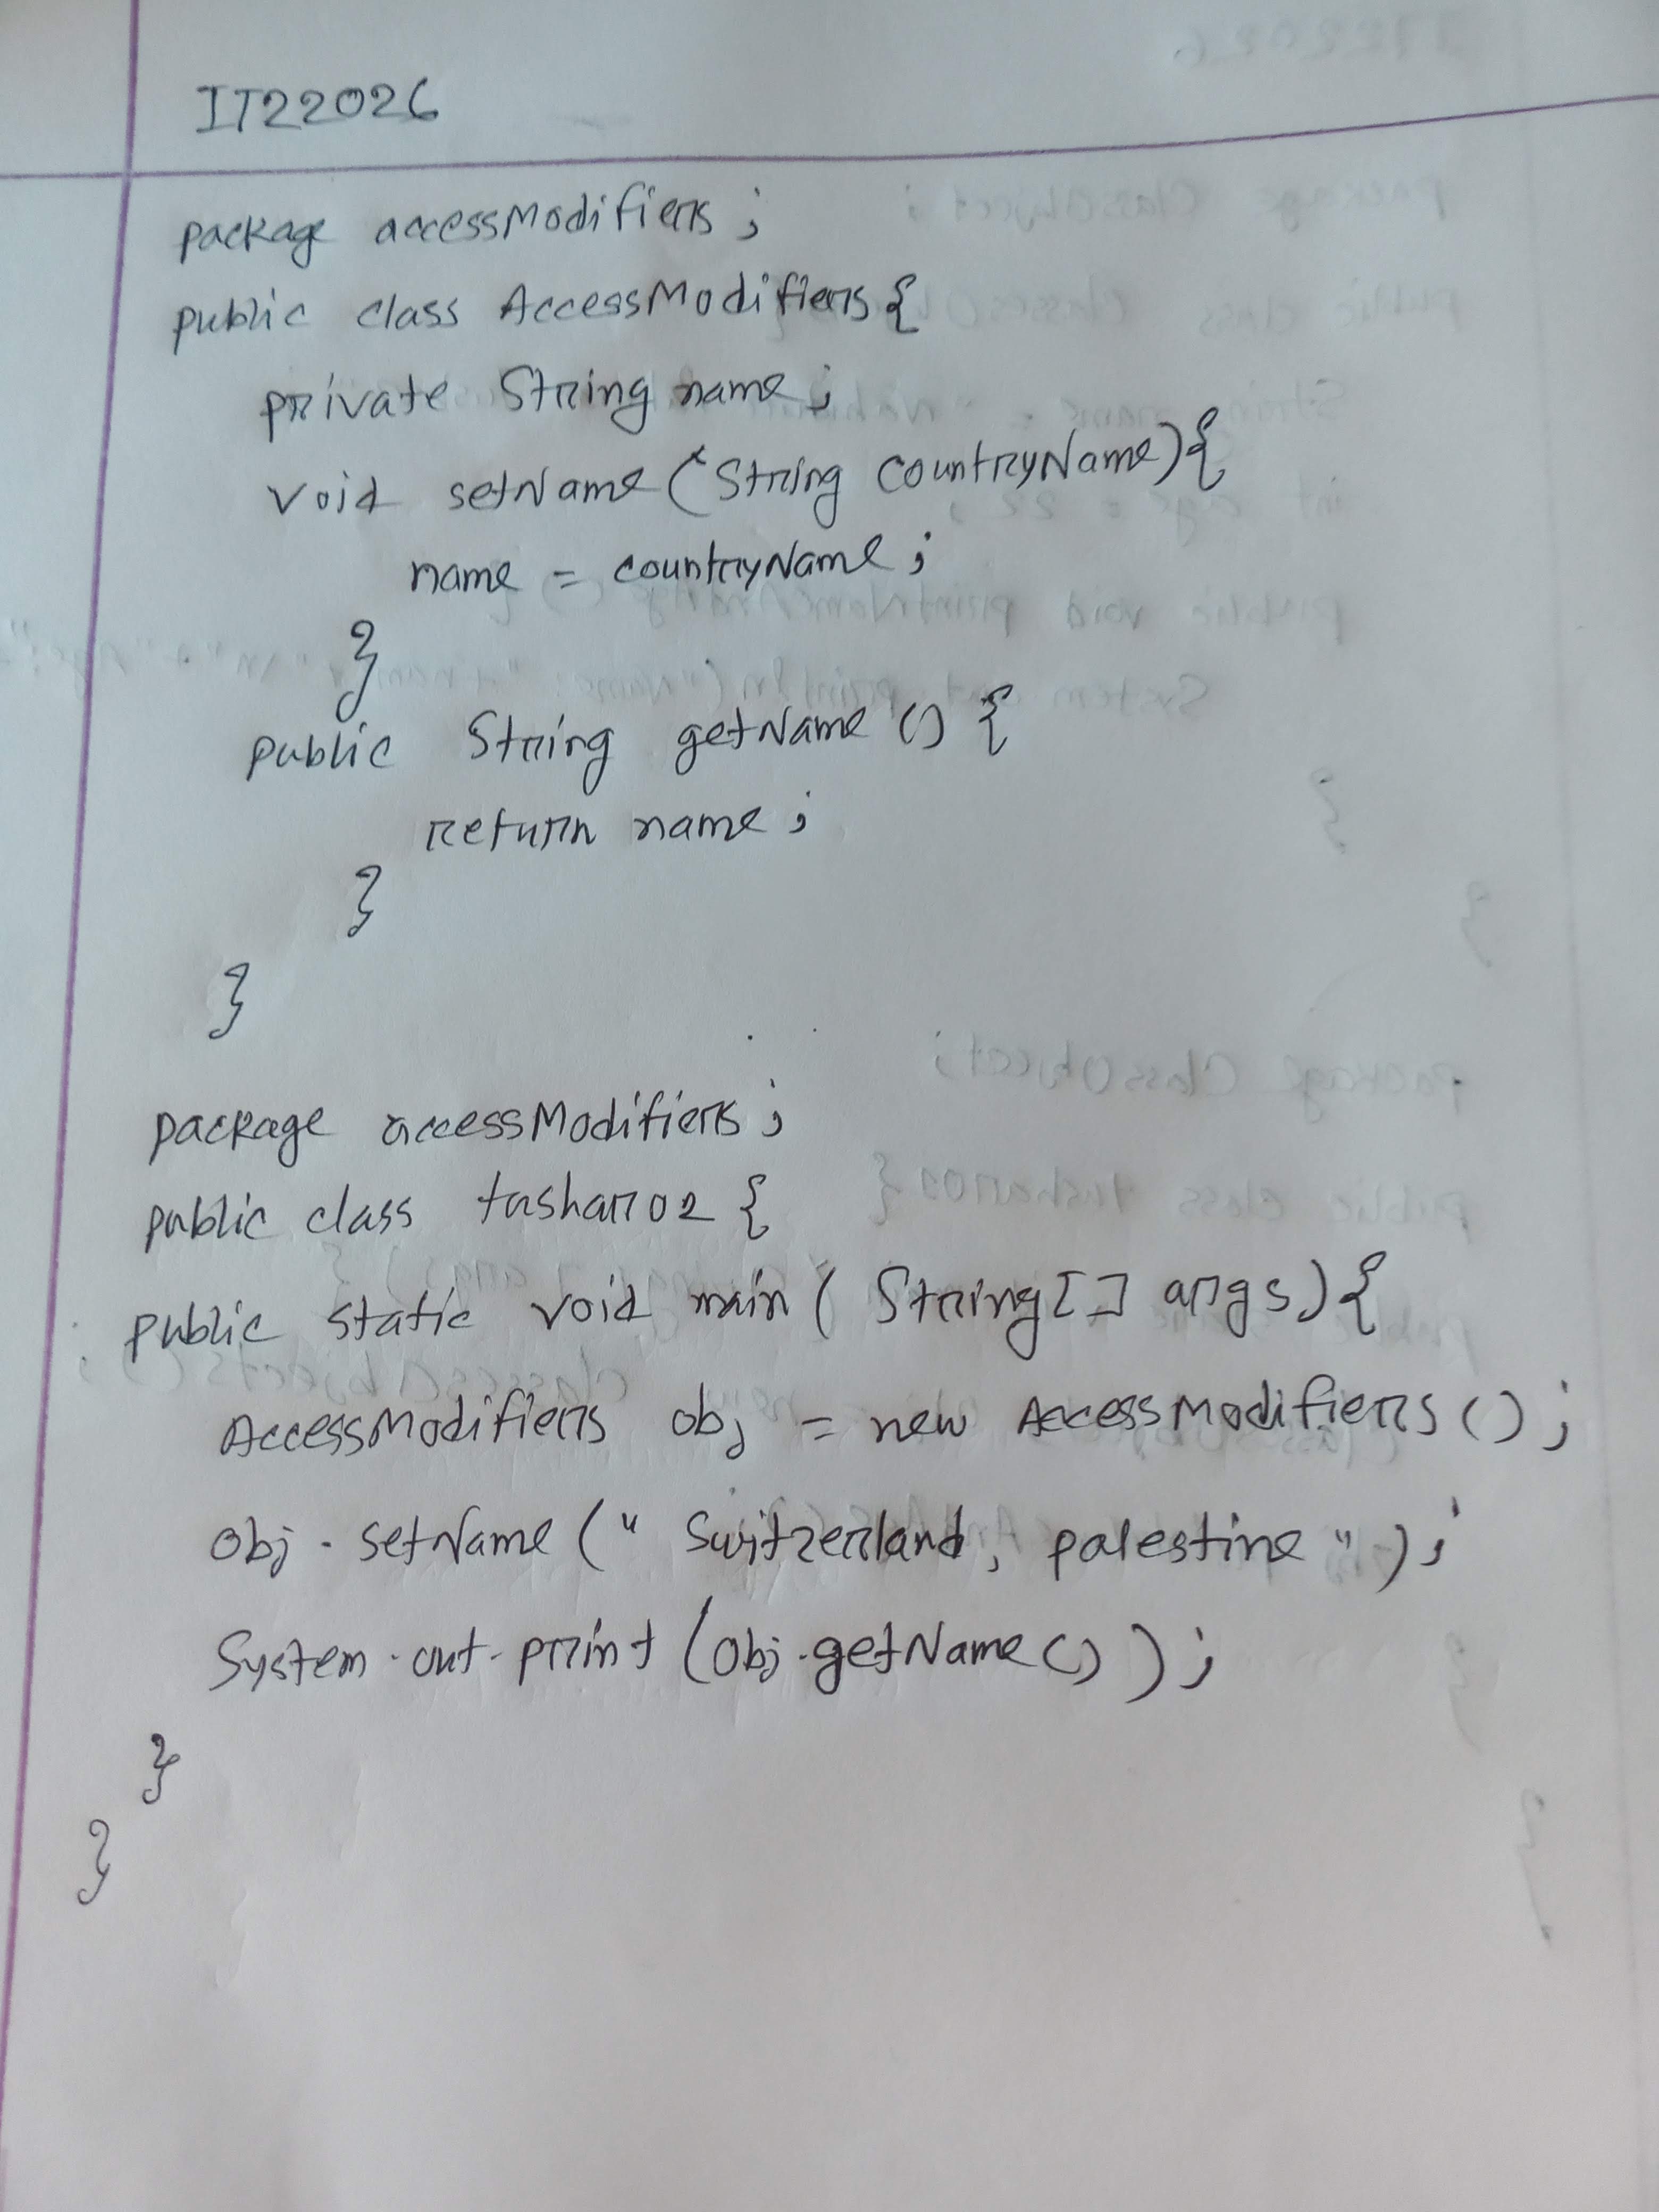 IT22026
package accessModifiers;
public class AccessModifiers{
private String name;
void setName(String countryName){
name = countryName;
}
public String getName() {
return name;
}
}
package accessModifiers;
public class tushar02 {
public static void main( String[] args){
AccessModifiers obj = new AccessModifiers();
obj.setName(" Switzerland, palestine ");
System.out.print(obj.getName());
}
}